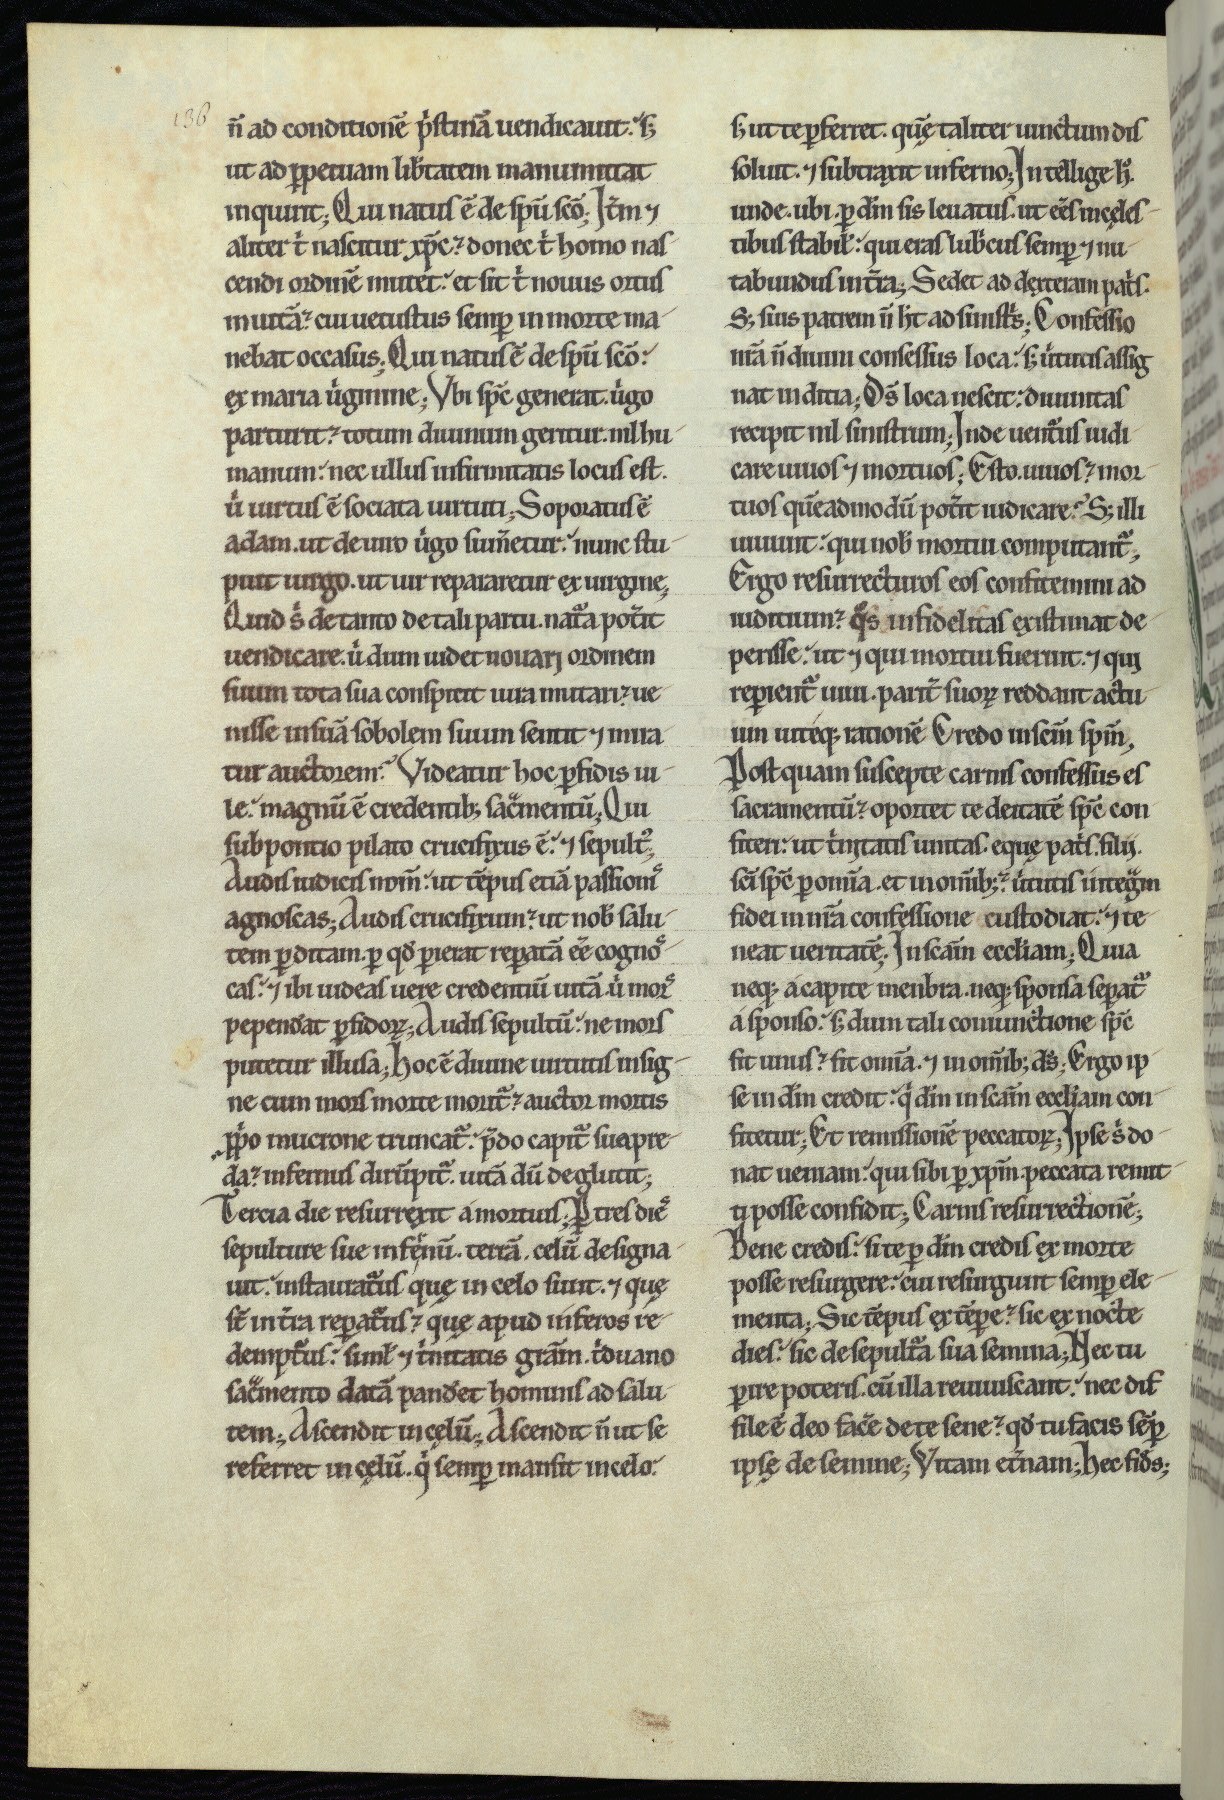 136
n̄ ad conditionē p̓stinā uendicauit. ſꝫ
ut ad ꝑpetuam lib̄tatem manumittat
inquirit; Qui natuſ ē de ſpū ſcō; It̄m ⁊
aliter t̓ naſcitur xp̄c? donec t̓ homo naſ-
cendi ordinē mutet. et ſit t̓ nouuſ ortuſ
in uitā? cui uetuſtuſ ſemꝑ in morte ma-
nebat occaſuſ; Qui natuſ ē de ſpū ſcō.
ex maria u̓gınıne; Vbi ſpc̄ generat. u̓go
parturit? totum diuinum geritur. nil hu-
manum. nec ulluſ infirmitatiſ locuſ eſt.
ů uirtuſ ē ſociata uirtuti; Soporatuſ ē
adam. ut de uiro u̓go ſum̄etur. nunc ſtu-
puit uirgo. ut uir repararetur ex uirgine;
Quid s̓ de tanto de tali partu. natᷓa pot̄it
uendicare. ů dum uidet nouari ordinem
ſuum tota ſua conſpicit iura mutari? ue-
niſſe in ſuā ſobolem ſuum ſentit ⁊ mira-
tur auctorem; Videatur hoc ꝑfidiſ ui-
le. magnū ē credentibꝫ ſac̄mentū; Qui
ſub pontio pilato crucifixuſ ē. ⁊ ſepult᷒;
Audiſ iudiciſ nom̄. ut tēpuſ etiā paſſioniſ
agnoſcaſ; Audiſ crucifixum? ut nob̄ ſalu-
tem ꝑditam. ꝑ qd̄ ꝑierat reꝑatā eē̄ cognoſ-
caſ. ⁊ ibi uideaſ uere credentiū uitā ů morſ
pependat ꝑfidoꝝ; Audiſ ſepultū. ne morſ
putetur illuſa; Hoc ē diuine uirtutiſ inſig-
ne cum morſ morte moritᷓ? auctor mortiſ
ꝓp̓o mucrone truncatᷓ. p̄do capitᷓ ſua pre-
da? infernuſ dirūpitᷓ. uitā dū deglutit;
Tercia die reſurrexit a mortuiſ; Ꝑ treſ dieſ
ſepulture ſue infernū. terrā. celū deſigna-
uit. inſtauratᷓuſ quę in celo ſunt. ⁊ quę
ſt̄ in t̄ra reꝑatᷓuſ? quę apud inferoſ re-
demptᷓuſ. ſimł ⁊ t̓nitatiſ grām. t̓duano
ſac̄mento datā pand̄et hominiſ ad ſalu-
tem; Aſcendit in cęlū; Aſcendit n̄ ut ſe
referret in cęlū. q̓ ſemꝑ manſit in celo.
ſꝫ ut te ꝑferret. quę taliter uinctum diſ-
ſoluit. ⁊ ſubtraxit inferno; Intellige h̊.
unde. ubi. ꝑ dm̄ ſiſ leuatuſ. ut eē̄ſ in celeſ-
tibuſ ſtabiliſ. qui eraſ lub̓cuſ ſemꝑ ⁊ nu-
tabunduſ in t̄ra; Sedet ad dexteram pat̓ſ.
Sꝫ ſuiſ patrem n̄ h̄t ad ſiniſt̓ſ; Confeſſio
nr̄a n̄ diuini conſeſſuſ loca. ſꝫ u̓tutiſ aſſig-
nat inditia; Dſ̄ loca neſcit. diuinitaſ
recipit nil ſiniſtrum; Inde uentᷓuſ iudi-
care uiuoſ ⁊ mortuoſ; Eſto. uiuoſ? mor-
tuoſ quēadmodū pot̄it iudicare? Sꝫ illi
uiuunt. qui nob̄ mortui computantᷓ;
Ergo reſurrecturoſ eoſ confitemini ad
iuditium? qᷤſ infidelitaſ exiſtimat de-
periſſe. ut ⁊ qui mortui fuerint. ⁊ qui
reperientᷓ uiui. parit̄ ſuoꝝ reddant actu-
um uiteqꝫ rationē Credo in ſcm̄ ſpm̄,
Poſt quam ſuſcepte carniſ confeſſuſ eſ
ſacramentū? oportet te deitatē ſpc̄ con-
fiteri. ut t̓nitatiſ unitaſ. eque pat̓ſ. filij.
ſci ſpc̄ ꝑ omīa. et in omībꝫ? u̓tutiſ integᷓm
fidei in nr̄a confeſſione cuſtodiat. ⁊ te-
neat ueritatē; In ſcām eccłiam; Quia
neqꝫ a capite menbra. neqꝫ ſponſa ſeꝑatᷓ
a ſponſo. ſꝫ dum tali coniunctione ſpc̄
fit unuſ? fit omīa. ⁊ in omībꝫ; dſ̄; Ergo ip-
ſe in dm̄ credit. q̓ dm̄ in ſcām eccłiam con-
fitetur; Et remiſſionē peccatoꝝ; Ipſe s̓ do-
nat ueniam. qui ſibi ꝑ xpm̄ peccata remit-
ti poſſe confidit; Carniſ reſurrectionē;
Bene crediſ. ſi te ꝑ dm̄ crediſ ex morte
poſſe reſurgere. cui reſurgunt ſemꝑ ele-
menta; Sic tēpuſ ex tēpe? ſic ex nocte
dieſ. ſic de ſepultᷓa ſua ſemina; Nec tu
ꝑire poteriſ. cū illa reuiuiſcant. nec dif-
file ē deo fac̄e de te ſene? qd̄ tu faciſ ſēꝑ
ipſe de ſemine; Vitam et̄nam; Hec fidſ̄;